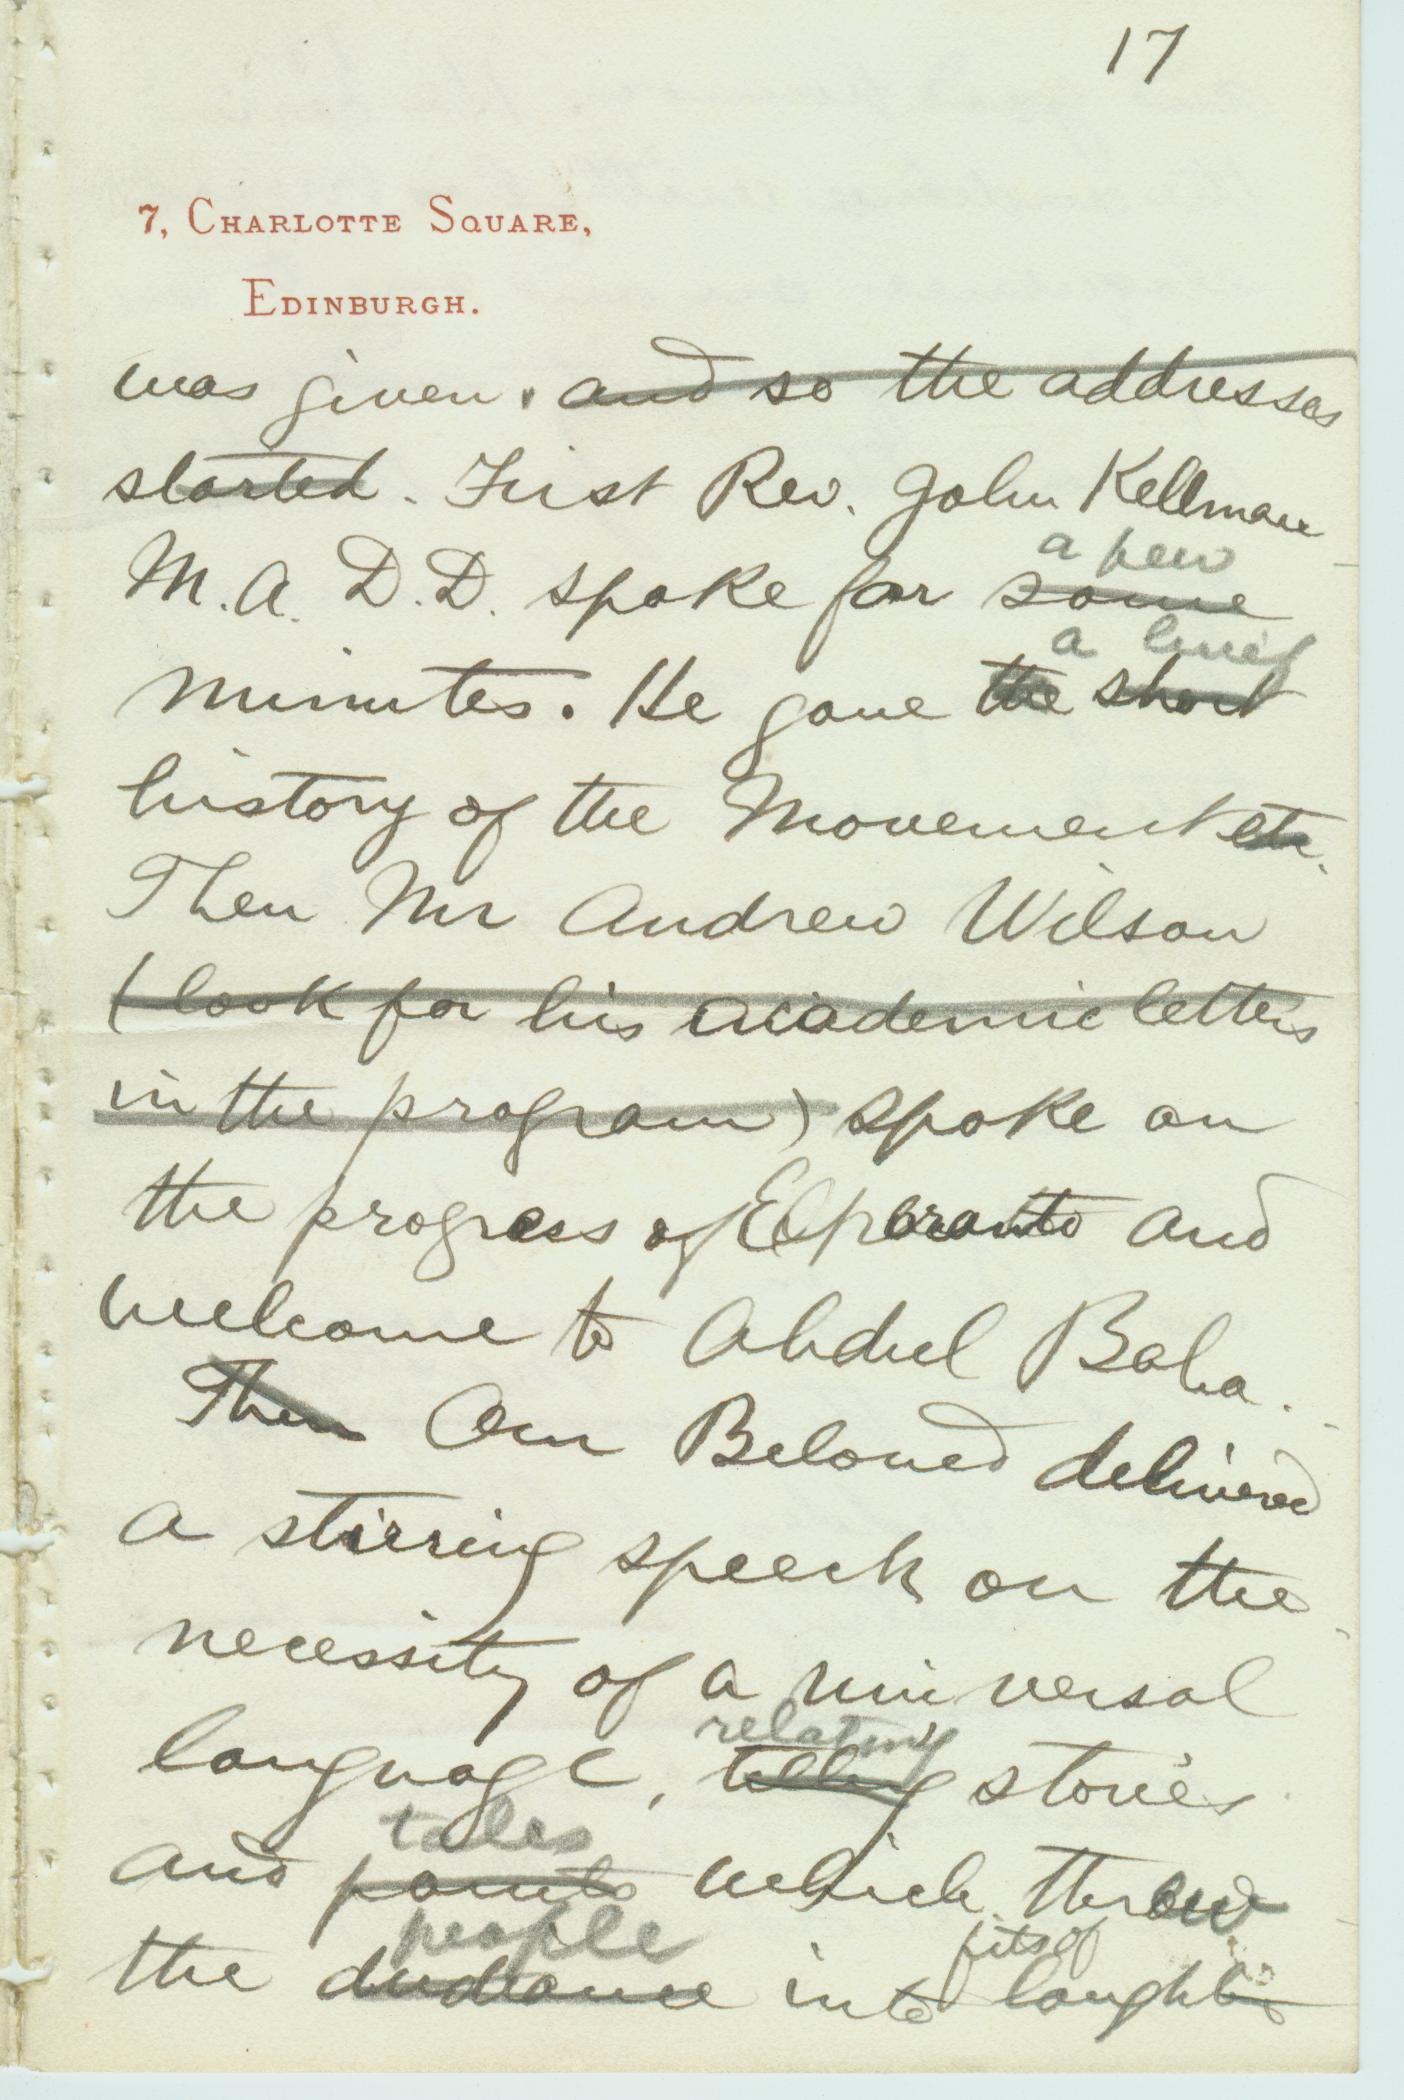 17
7, Charlotte Square,
Edinburgh.
was given. and so the addresses
started. First Rev. John Kellman
a few
M.A. D.D. spoke for some
a brief
minutes. He gave the short
history of the Movement etc.
Then Mr Andrew Wilson
(look for his academic letters
in the program) spoke on
the progress of Esperanto and
welcome to Abdul Baha.
Then Our Beloved delivered
a stirring speech on the
necessity of a universal
relating
language, telling stories
tales
and points which throw
people fits of
the audience into laughter